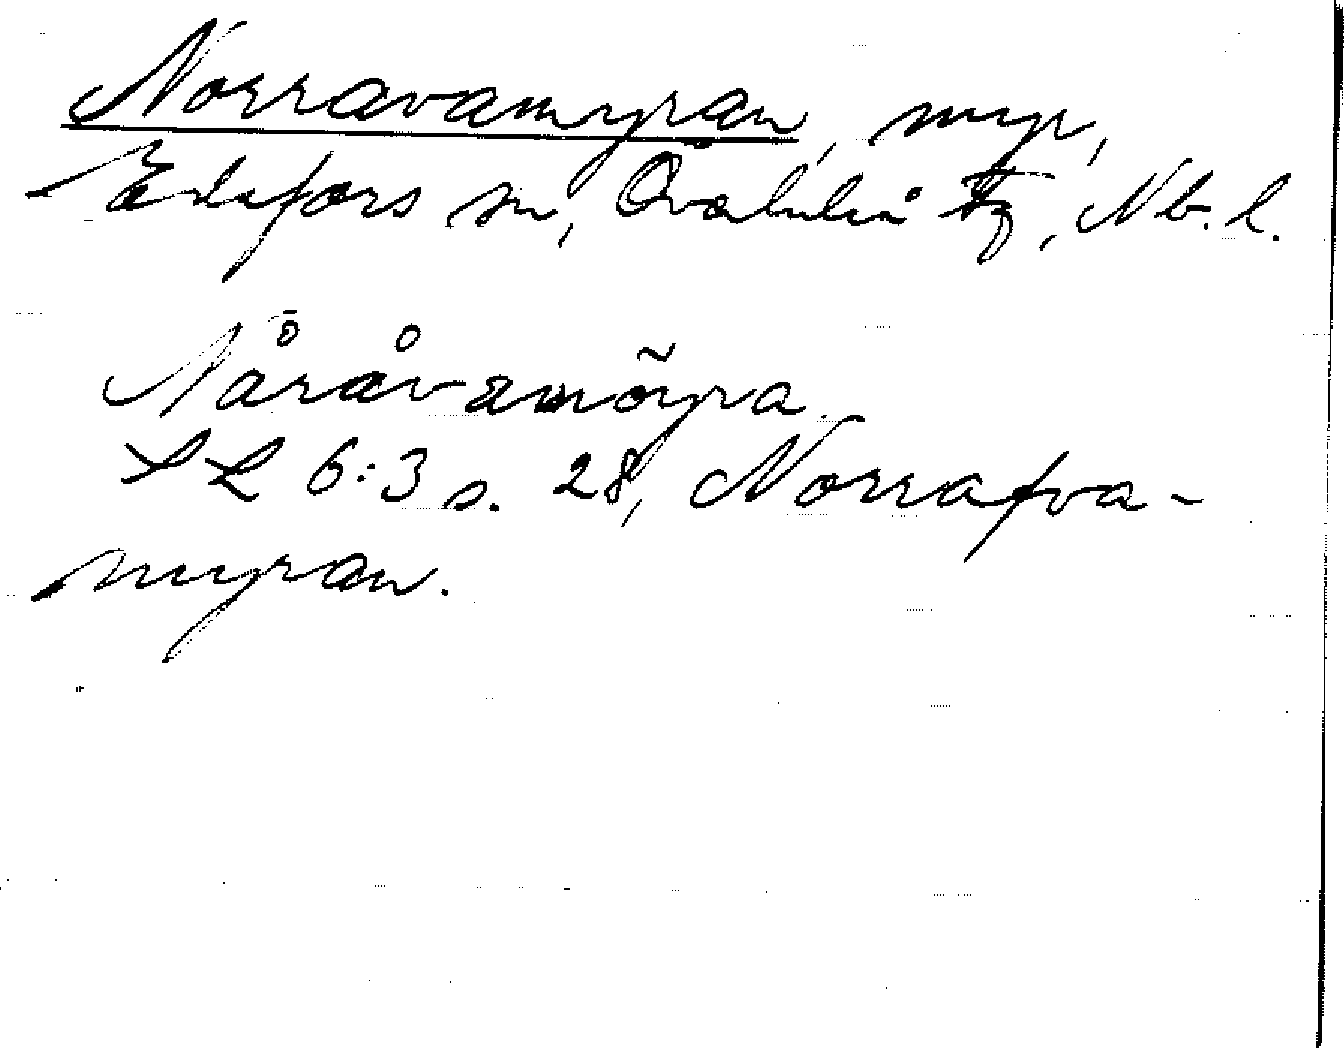 Norravamyran, myr,
Edefors sn, Överluleå tg, Nb. l.
Nåråvamõyra.
SL 6:3 s. 28, Norrafva-
myran.